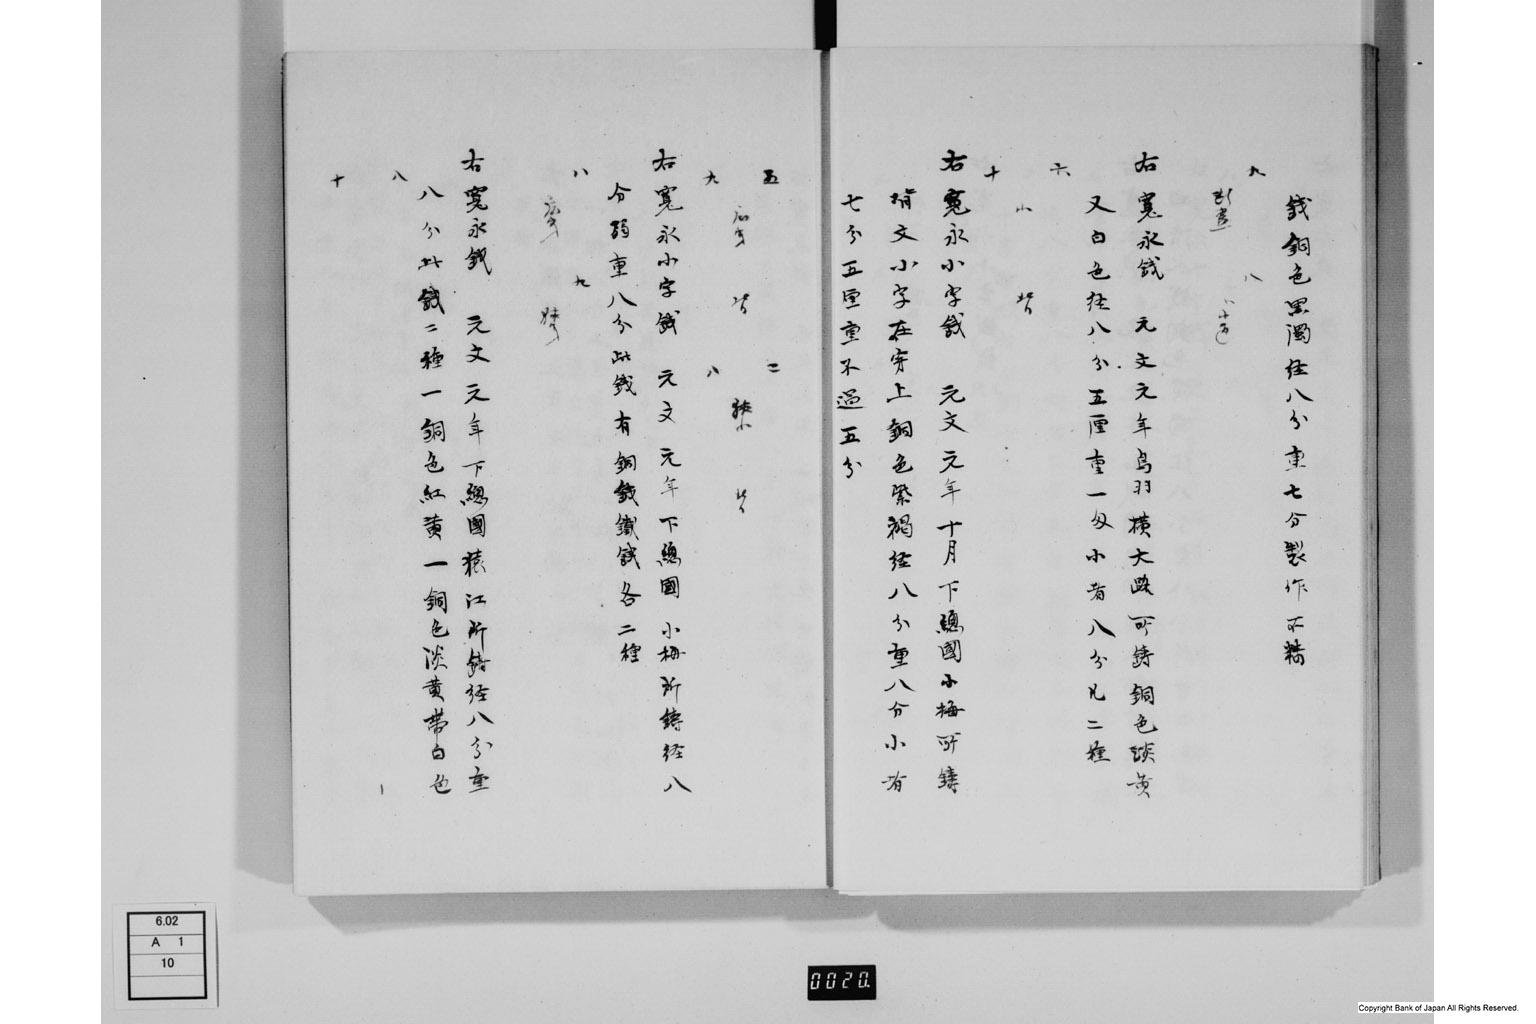 錢銅色黒濁径八分重七分製作不精
九
八
右寛永錢 元文元年鳥羽横大路所鋳銅色淡黄
又白色径八分五厘重一匁小者八分凡二種
六
十
小
背
右寛永小字錢 元文元年十月下總國小梅所鋳
背文小字在穿上銅色紫褐径八分重八分小者
七分五厘重不過五分
五
二
背
狹小
背
六
八
右寛永小字錢 元文元年下總國小梅所鋳径八
分弱重八分此錢有銅錢鐵錢各二種
八
九
右寛永錢 元文元年下總國猿江所鋳径八分重
八分此錢二種一銅色紅黄一銅色淡黄帯白色
八
十
6.02
A 1
10
0020.
Copyright Bank of Japan All Rights Reserved.